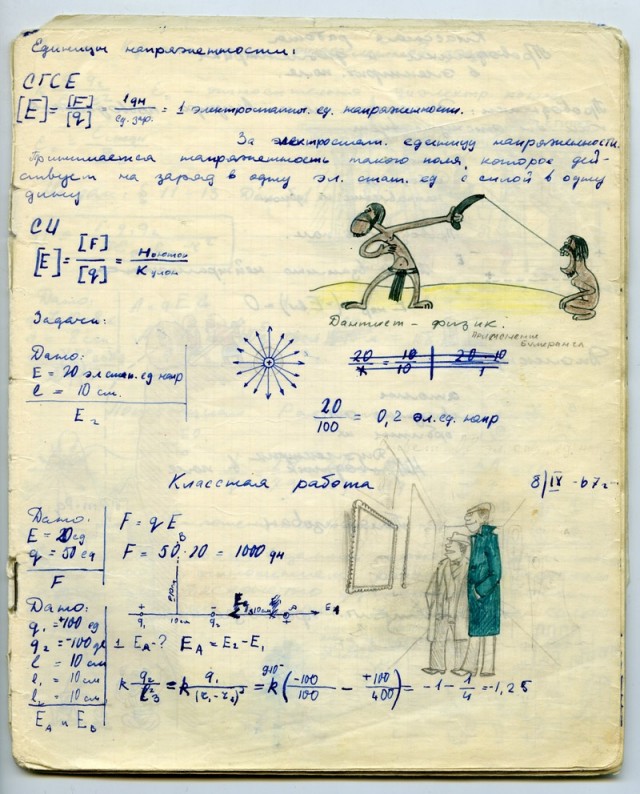 Единицы напряженности:
СГСЕ
[E] = [F]/[q] = 1 дн/ед. зар. = 1 электростатич. ед. напряженности.
За электростат. единицу напряженности
принимается напряженность такого поля, которое дей-
ствует на заряд в одну эл. стат. ед с силой в одну
дину
СИ
[E] = [F]/[q] = Ньютон/Кулон
Дантист - физик.
применение
бумеранга
Задачи:
Дано:
E = 20 эл стат. ед напр
l = 10 см.
E₂
20/100 = 0,2 эл. ед. напр
Классная работа
8/IX -67г
Дано:
E = 20 ед
q = 50 ед
F
F = qE
F = 50 · 20 = 1000 дн
Дано:
q₁ = +100 ед
q₂ = -100 ед
l = 10 см
l₁ = 10 см
l₂ = 10 см
E_A и E_B
B
10 см
+ q₁
10 см
- q₂
10 см
A
E_A
1 E_A - ? E_A = E₂ - E₁
= k (-100/100 - +100/400) = -1 - 1/4 = -1,25